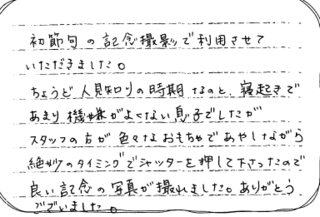 初節句の記念撮影で利用させて
いただきました。
ちょうど人見知りの時期なのと、寝起きで
あまり機嫌がよくない息子でしたが
スタッフの方が色々なおもちゃであやしながら
絶妙のタイミングでシャッターを押して下さったので
良い記念の写真が撮れました。ありがとう
ございました。